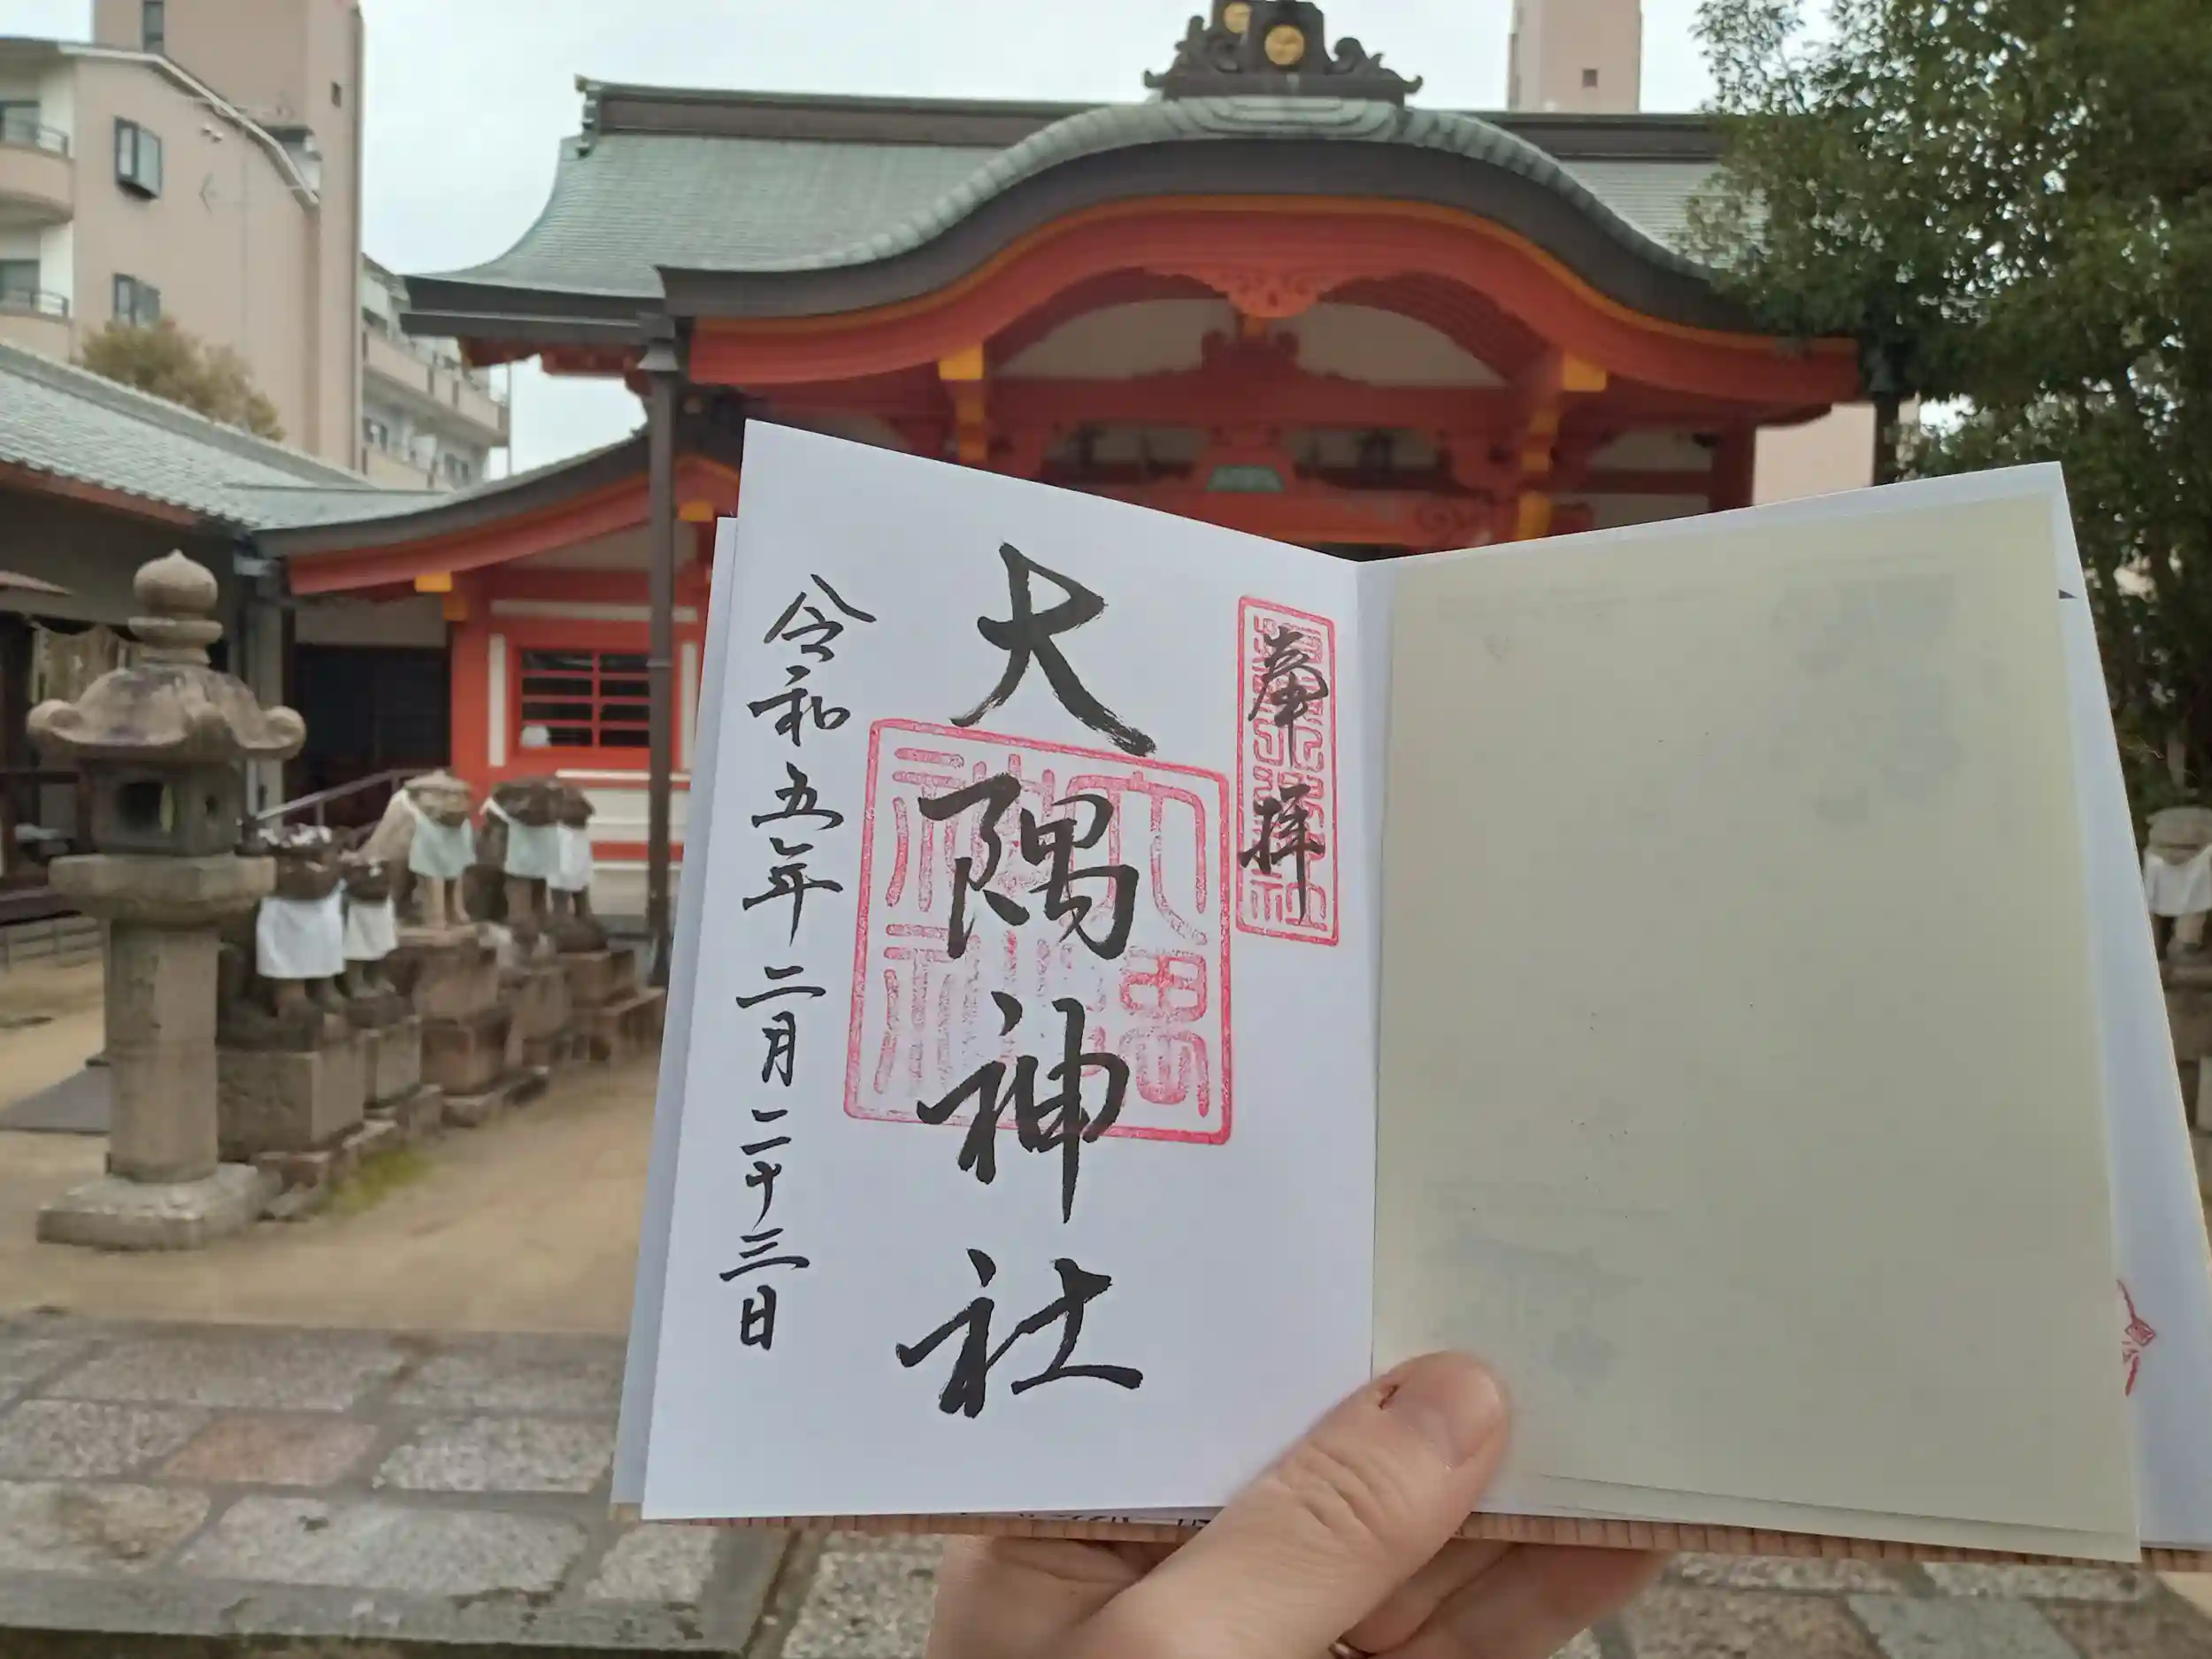 奉拝
大隅神社
令和五年二月二十三日